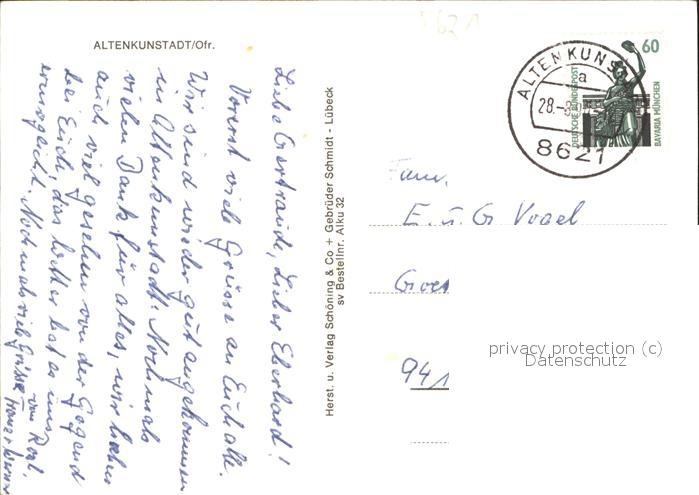 ALTENKUNSTADT/Ofr.
Liebe Gertraide, Lieber Eberhard!
Vorerst viele Grüsse an Euch alle.
Wir sind wieder gut angekommen
in Altenkunstadt. Nochmals
vielen Dank für alles, wir haben
auch viel gesehen von der Gegend
bei Euch, das Wetter hat es uns
ermöglicht. Nochmals viele Grüsse
von Rosl,
Herst. u. Verlag Schöning & Co + Gebrüder Schmidt - Lübeck
sv Bestellnr. Alku 32
ALTENKUNS
a
28.-
8621
60
DEUTSCHE BUNDESPOST
BAVARIA MÜNCHEN
Fam.
E. u. G. Vogel
Goet
94
privacy protection (c)
Datenschutz